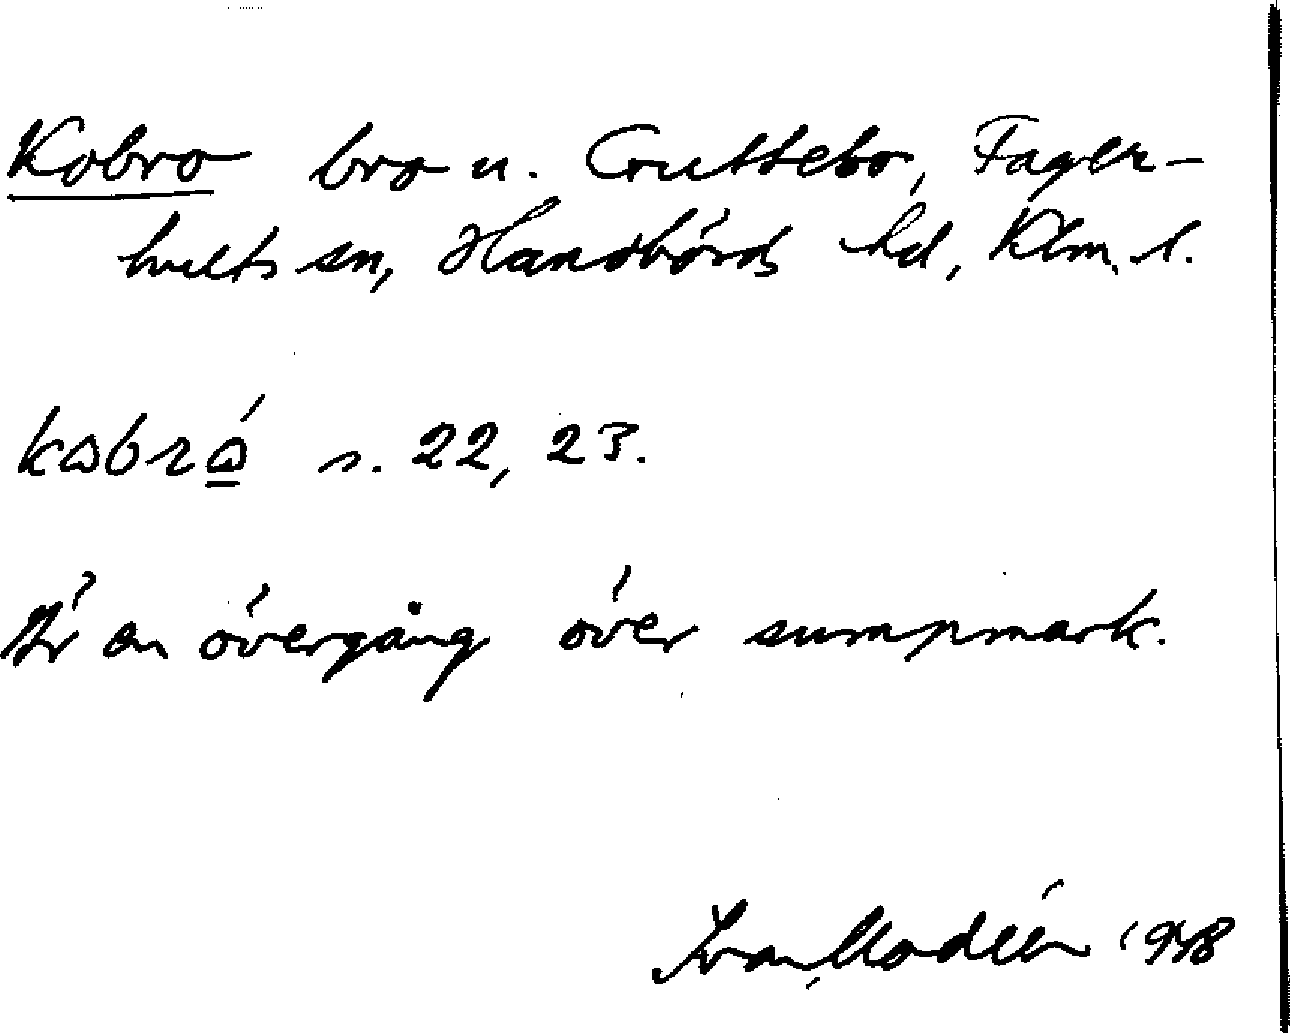 Kobro bro u. Gruttebo, Fager-
hults sn, Handbörds hd, Klm. l.
kɷbrɷ́ s. 22, 23.
Är en övergång över sumpmark.
Ivar Modéer 1948